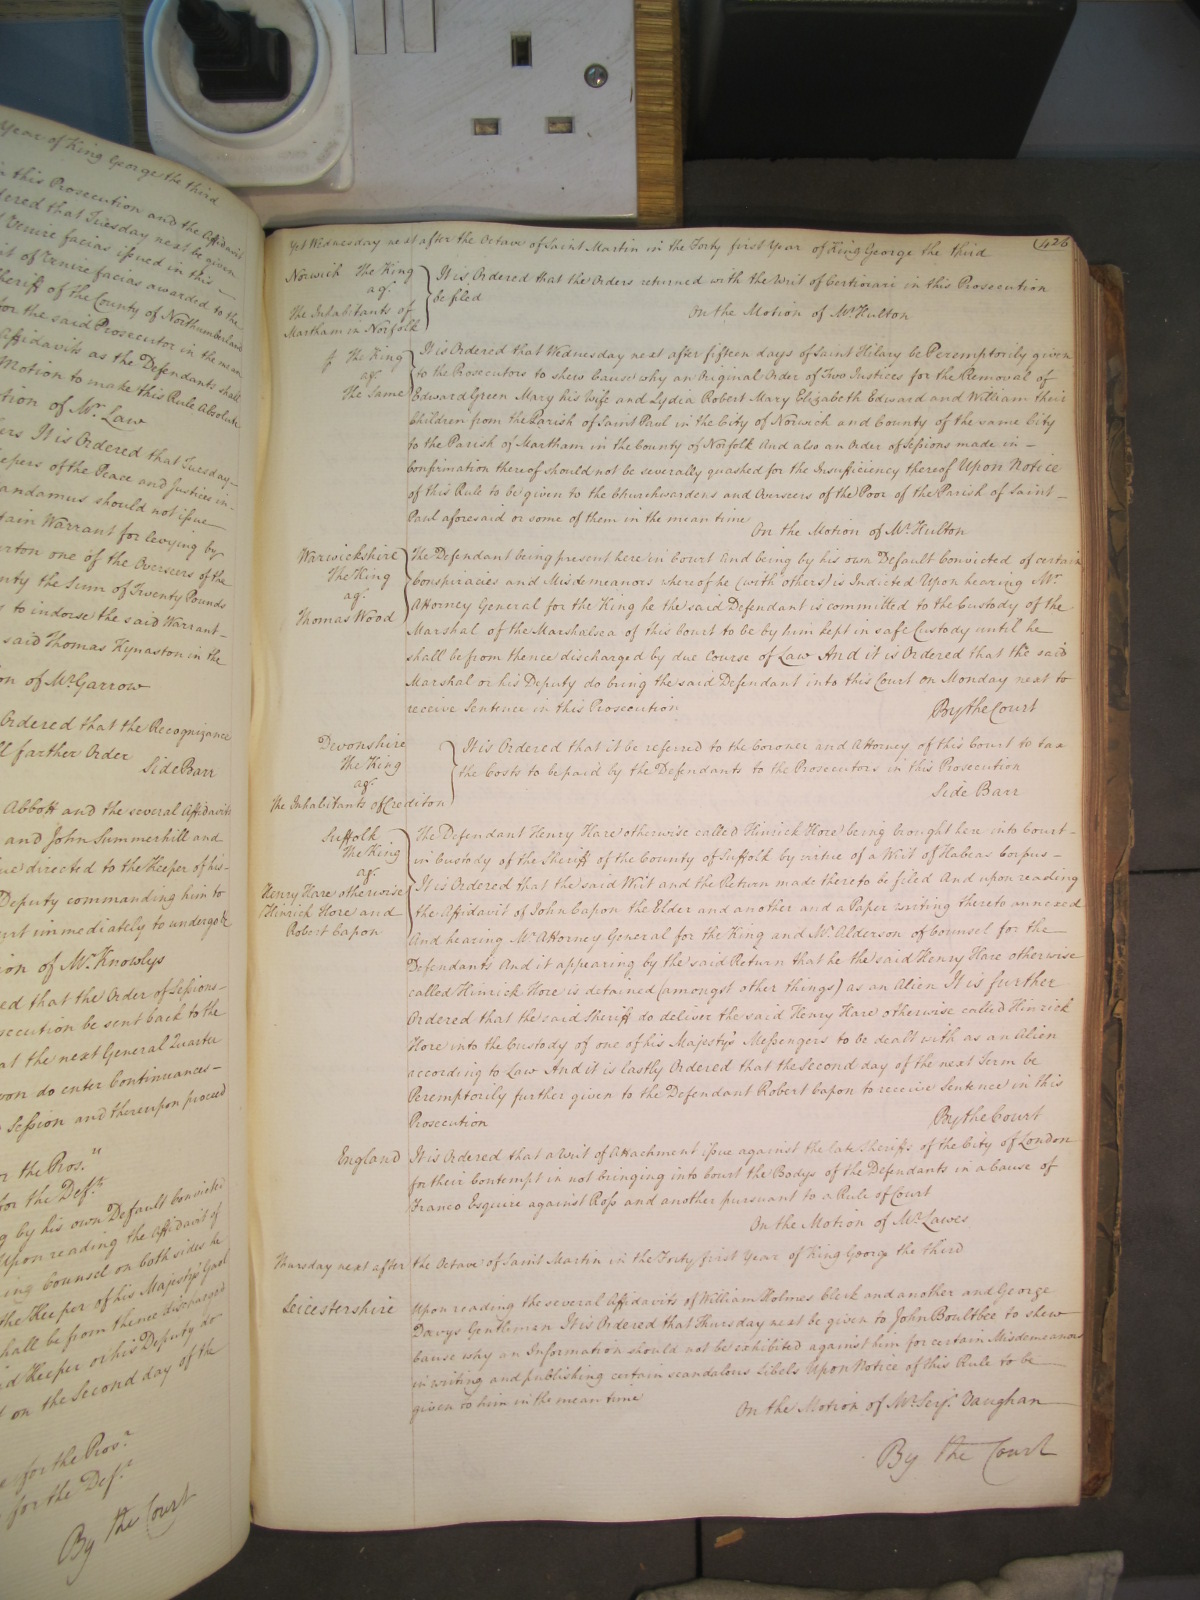 Year of King George the third
this Prosecution and the Affidavit
ered that Tuesday next be given
Venire facias issued in this —
it of Venire facias awarded to the
Sheriff of the County of Northumberland
for the said Prosecutor in the mean
Affidavits as the Defendants shall
Motion to make this Rule Absolute
tion of Mr. Law
ers It is Ordered that Tuesday —
epers of the Peace and Justices in —
andamus should not issue
tain Warrant for levying by
erton one of the Overseers of the
nty the Sum of Twenty Pounds
to indorse the said Warrant —
said Thomas Kynaston in the
on of Mr. Garrow
Ordered that the Recognizance
ll farther Order
Side Barr
Abbott and the several Affidavits
and John Summerhill and
ue directed to the Keeper of his —
Deputy commanding him to
urt immediately to undergo &
ion of Mr. Knowlys
ed that the Order of Sessions —
secution be sent back to the
at the next General Quarter
on do enter Continuances —
Session and thereupon proceed
r the Pros.rs
for the Def.ts
g by his own Default Convicted
Upon reading the Affidavit of
ing Counsel on both sides he
the Keeper of his Majesty's Gaol
shall be from thence discharged
id Keeper or his Deputy do
on the second day of the
for the Pros.r
for the Def.t
By the Court
426
Yet Wednesday next after the Octave of Saint Martin in the Forty first Year of King George the third
Norwich The King
ag.t
The Inhabitants of
Martham in Norfolk
It is Ordered that the Orders returned with the Writ of Certiorari in this Prosecution
be filed
On the Motion of Mr. Hulton
The King
ag.t
The Same
It is Ordered that Wednesday next after fifteen days of Saint Hilary be Peremptorily given
to the Prosecutors to shew Cause why an Original Order of Two Justices for the Removal of
Edward Green Mary his Wife and Lydia Robert Mary Elizabeth Edward and William their
Children from the Parish of Saint Paul in the City of Norwich and County of the same City
to the Parish of Martham in the County of Norfolk And also an Order of Sessions made in —
Confirmation thereof should not be severally quashed for the Insufficiency thereof Upon Notice
of this Rule to be given to the Churchwardens and Overseers of the Poor of the Parish of Saint —
Paul aforesaid or some of them in the mean time
On the Motion of Mr. Hulton
Warwickshire
The King
ag.t
Thomas Wood
The Defendant being present here in Court And being by his own Default Convicted of certain
Conspiracies and Misdemeanors whereof he (with others) is Indicted Upon hearing Mr.
Attorney General for the King he the said Defendant is committed to the Custody of the
Marshal of the Marshalsea of this Court to be by him kept in safe Custody until he
shall be from thence discharged by due Course of Law And it is Ordered that the said
Marshal or his Deputy do bring the said Defendant into this Court on Monday next to
receive Sentence in this Prosecution
By the Court
Devonshire
The King
ag.t
The Inhabitants of Crediton
It is Ordered that it be referred to the Coroner and Attorney of this Court to tax
the Costs to be paid by the Defendants to the Prosecutors in this Prosecution
Side Barr
Suffolk
The King
ag.t
Henry Hare otherwise
Hinrick Hore and
Robert Capon
The Defendant Henry Hare otherwise called Hinrick Hore being brought here into Court —
in Custody of the Sheriff of the County of Suffolk by virtue of a Writ of Habeas Corpus —
It is Ordered that the said Writ and the Return made thereto be filed And upon reading
the Affidavit of John Capon the Elder and another and a Paper writing thereto annexed
And hearing Mr. Attorney General for the King and Mr. Alderson of Counsel for the
Defendants And it appearing by the said Return that he the said Henry Hare otherwise
called Hinrick Hore is detained (amongst other things) as an Alien It is further
Ordered that the said Sheriff do deliver the said Henry Hare otherwise called Hinrick
Hore into the Custody of one of his Majesty's Messengers to be dealt with as an Alien
according to Law And it is lastly Ordered that the second day of the next Term be
Peremptorily further given to the Defendant Robert Capon to receive Sentence in this
Prosecution
By the Court
England
It is Ordered that a Writ of Attachment issue against the late Sheriffs of the City of London
for their Contempt in not bringing into Court the Bodys of the Defendants in a Cause of
Franco Esquire against Ross and another pursuant to a Rule of Court
On the Motion of Mr. Lawes
Thursday next after the Octave of Saint Martin in the Forty first Year of King George the third
Leicestershire
Upon reading the several Affidavits of William Holmes Clerk and another and George
Davys Gentleman It is Ordered that Thursday next be given to John Boultbee to shew
Cause why an Information should not be exhibited against him for certain Misdemeanors
in writing and publishing certain scandalous Libels Upon Notice of this Rule to be
given to him in the mean time
On the Motion of Mr. Serj.t Vaughan
By the Court